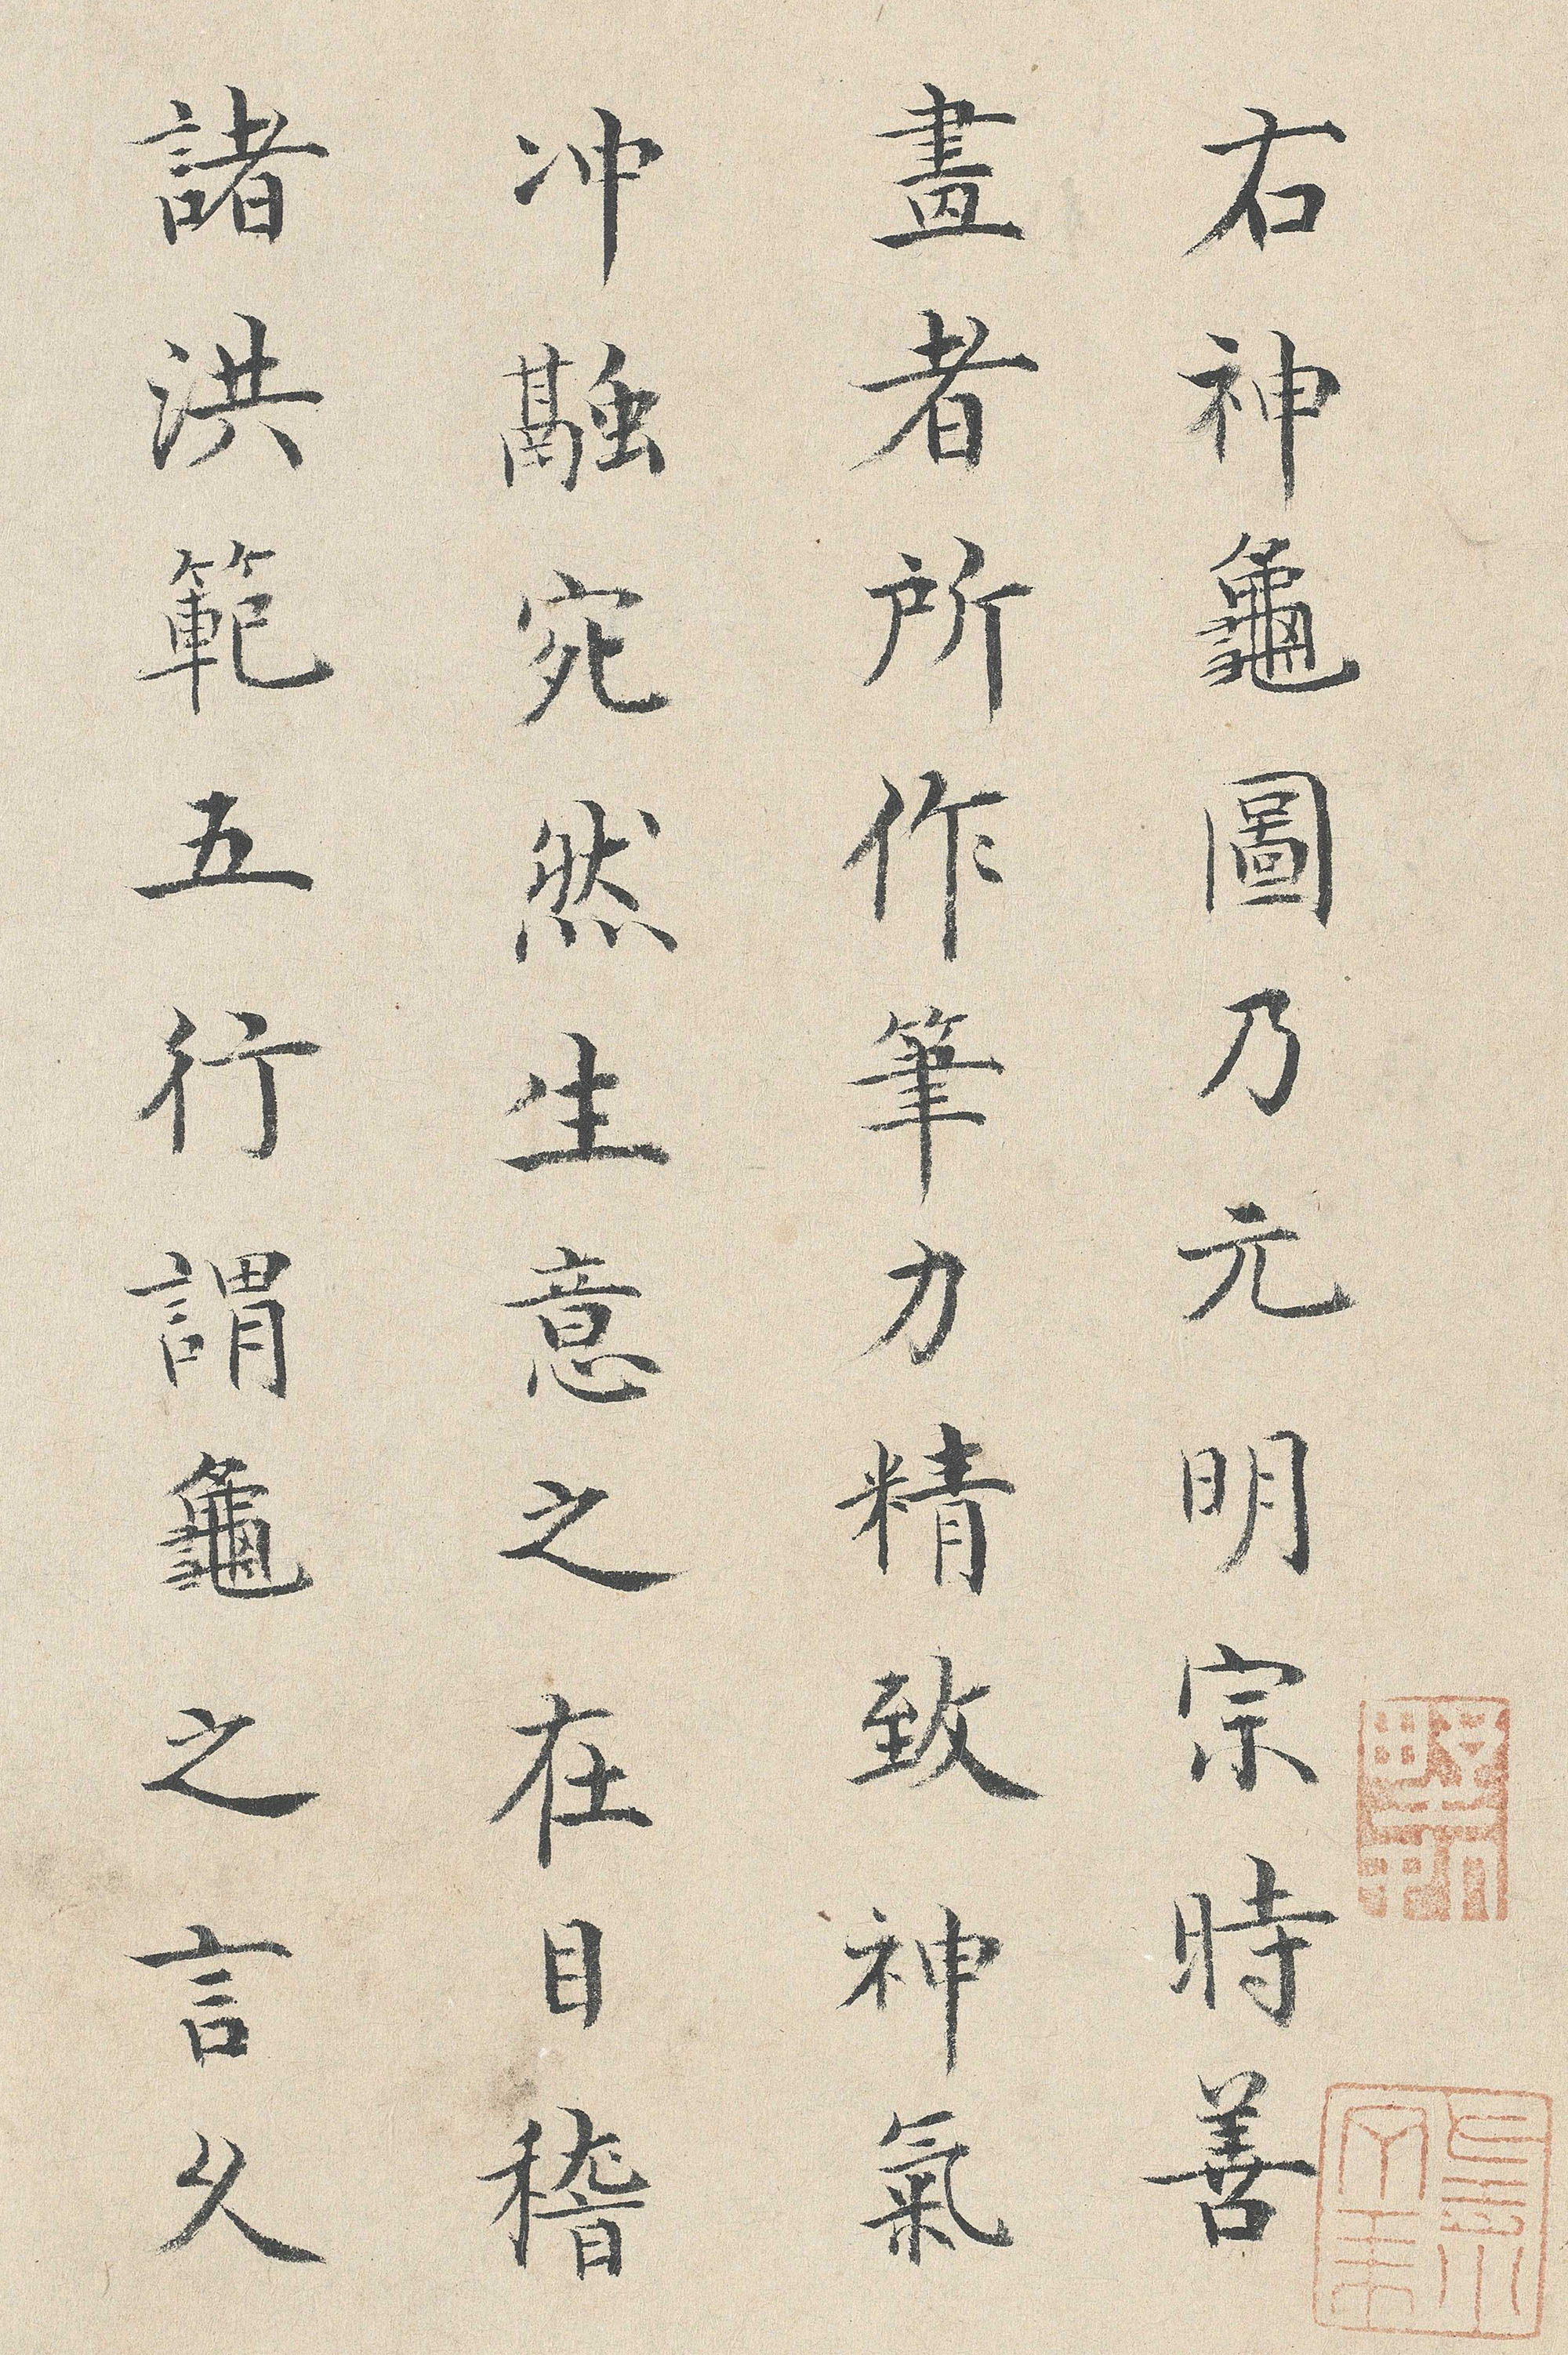 右神龜圖乃元明宗時善
畫者所作筆力精致神氣
冲融宛然生意之在目稽
諸洪範五行謂龜之言久